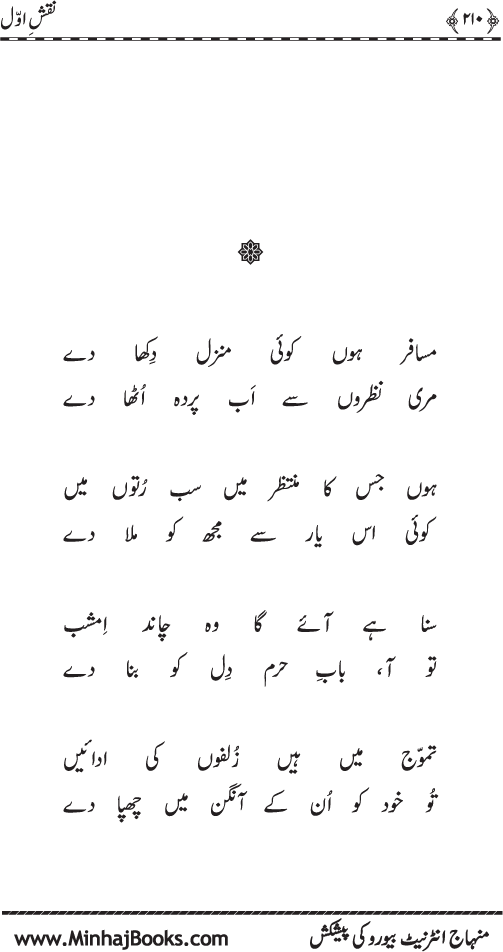 ﴿۲۱۰﴾ نقشِ اوّل
مسافر ہوں کوئی منزل دِکھا دے
مری نظروں سے اَب پردہ اُٹھا دے
ہوں جس کا منتظر میں سب رُتوں میں
کوئی اس یار سے مجھ کو ملا دے
سنا ہے آئے گا وہ چاند اِمشب
تو آ، بابِ حرم دِل کو بنا دے
تموّج میں ہیں زُلفوں کی ادائیں
تُو خود کو اُن کے آنگن میں چھپا دے
منہاج انٹرنیٹ بیورو کی پیشکش www.MinhajBooks.com